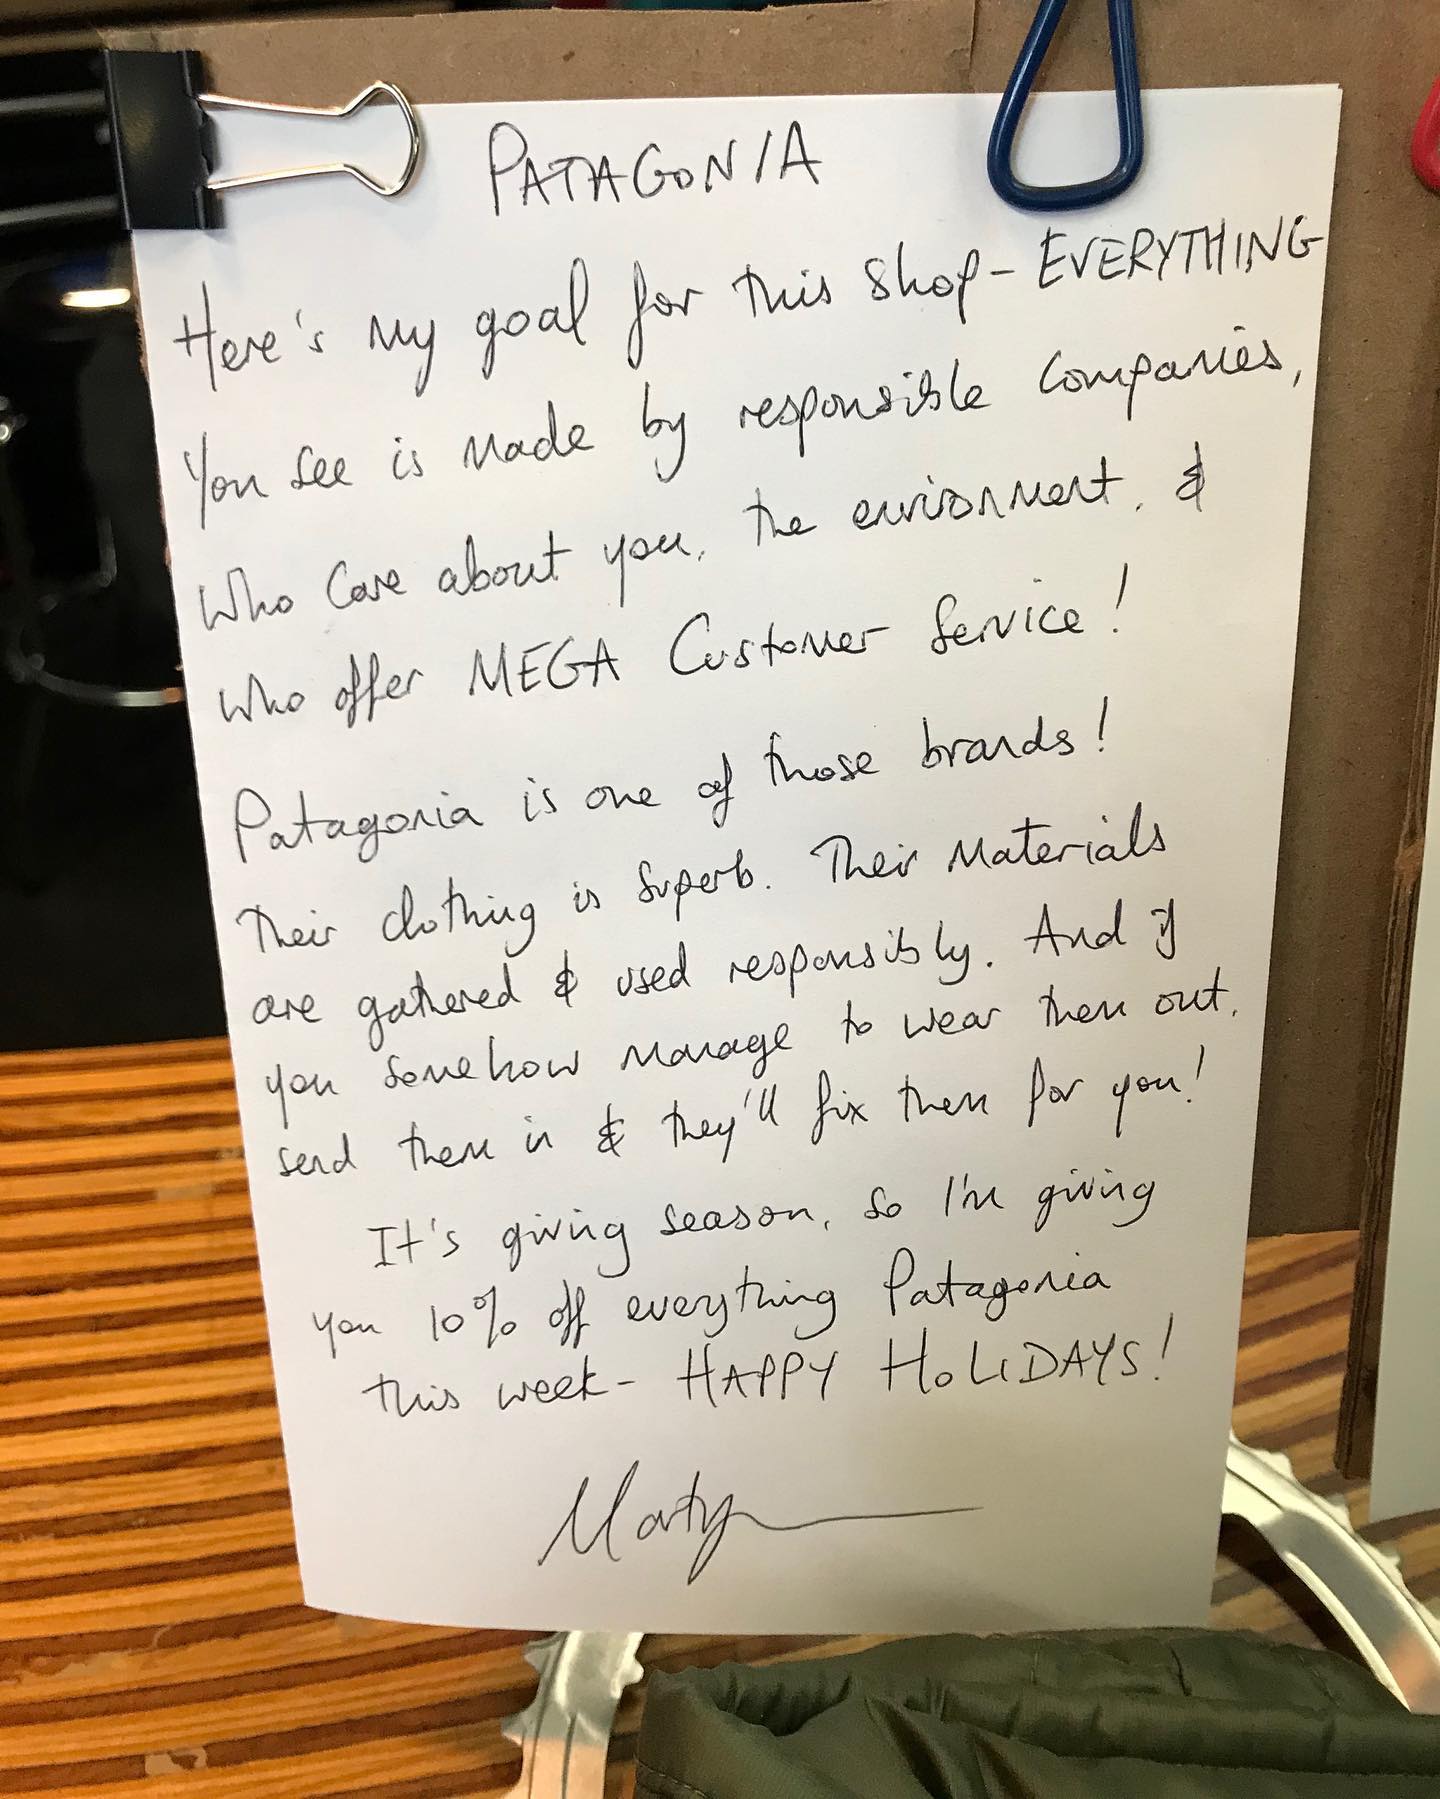 PATAGONIA
Here's my goal for this shop - EVERYTHING
you see is made by responsible companies,
who care about you, the environment, &
who offer MEGA Customer Service!
Patagonia is one of those brands!
Their clothing is superb. Their materials
are gathered & used responsibly. And if
you somehow manage to wear them out,
send them in & they'll fix them for you!
It's giving season, so I'm giving
you 10% off everything Patagonia
this week - HAPPY HOLIDAYS!
Marty